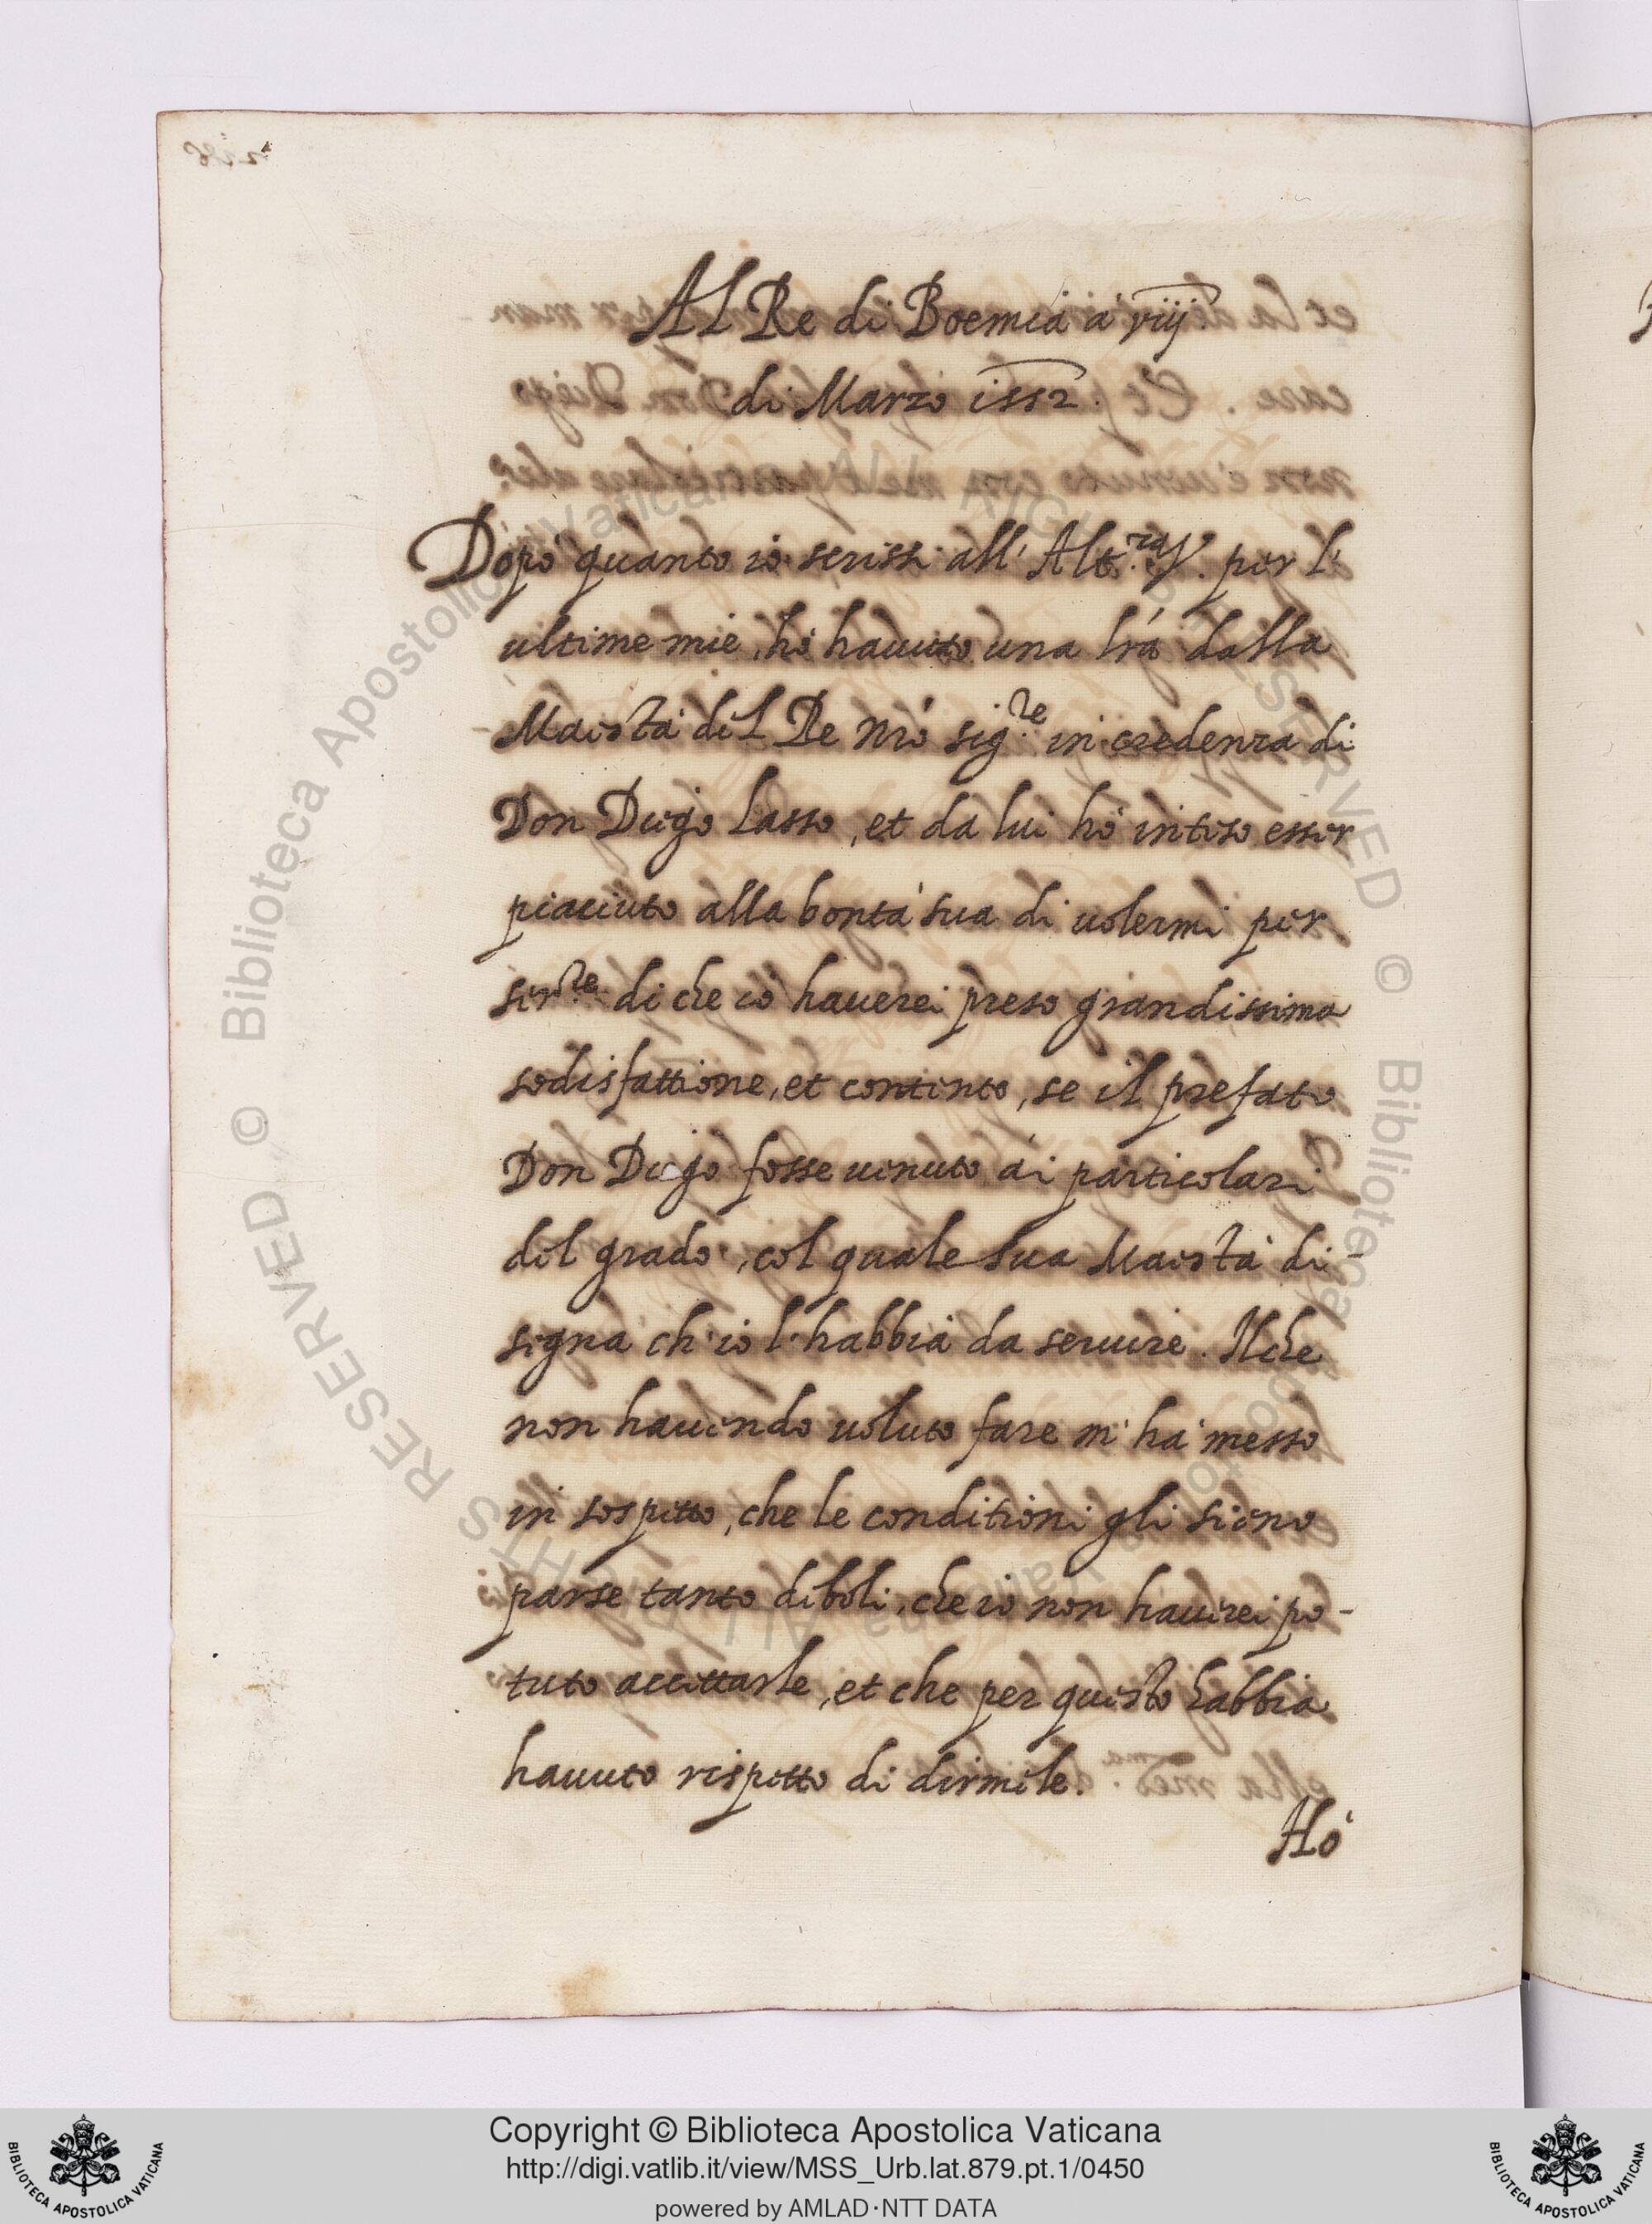 Al Re di Boemia à viij.
di Marzo 1552.
Dopò quanto io scrissi all' Alt.za V. per l'
ultime mie, hò hauuto una lrã dalla
Maestà del Re nrõ sig.re in credenza di
Don Diego Lasso, et da lui hò inteso esser
piaciuto alla bontà sua di uolermi per
ser.re di che io hauerei preso grandissima
sodisfattione, et contento, se il prefato
Don Diego fosse uenuto ài particolari
del grado, col quale sua Maestà di-
segna ch' io l' habbia da seruire. Ilche
non hauendo uoluto fare m' hà messo
in sospetto, che le conditioni gli sieno
parse tanto deboli, che io non hauerei po-
tuto accettarle, et che per questo habbia
hauuto rispetto di dirmele.
Hò
© Biblioteca Apostolica Vaticana ALL RIGHTS RESERVED © Biblioteca Apostolica Vaticana ALL RIGHTS RESERVED
Copyright © Biblioteca Apostolica Vaticana
http://digi.vatlib.it/view/MSS_Urb.lat.879.pt.1/0450
powered by AMLAD·NTT DATA
BIBLIOTECA APOSTOLICA VATICANA
BIBLIOTECA APOSTOLICA VATICANA